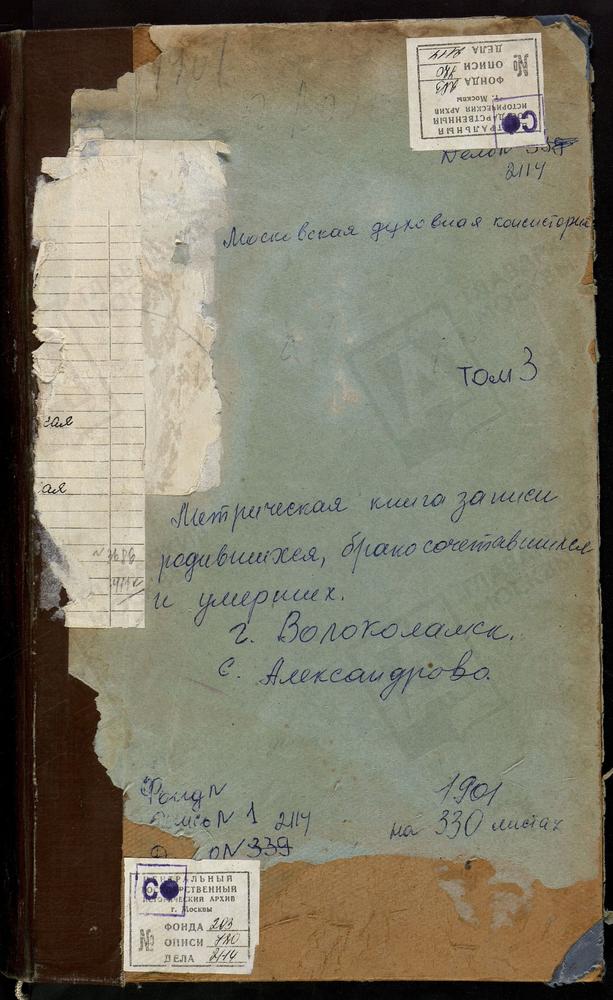 1901
№
ФОНДА 203
ОПИСИ 780
ДЕЛА 2114
ЦЕНТРАЛЬНЫЙ
ГОСУДАРСТВЕННЫЙ
ИСТОРИЧЕСКИЙ АРХИВ
г. Москвы
СО
Дело № 339
2114
Московская духовная консистория
том 3
кая
ая
Метрическая книга записи
родившихся, бракосочетавшихся
и умерших.
г. Волоколамск.
с. Александрово.
Фонд №
Опись № 1 2114
№ 339
1901
на 330 листах
ЦЕНТРАЛЬНЫЙ
ГОСУДАРСТВЕННЫЙ
ИСТОРИЧЕСКИЙ АРХИВ
г. Москвы
СО
№
ФОНДА 203
ОПИСИ 780
ДЕЛА 2114